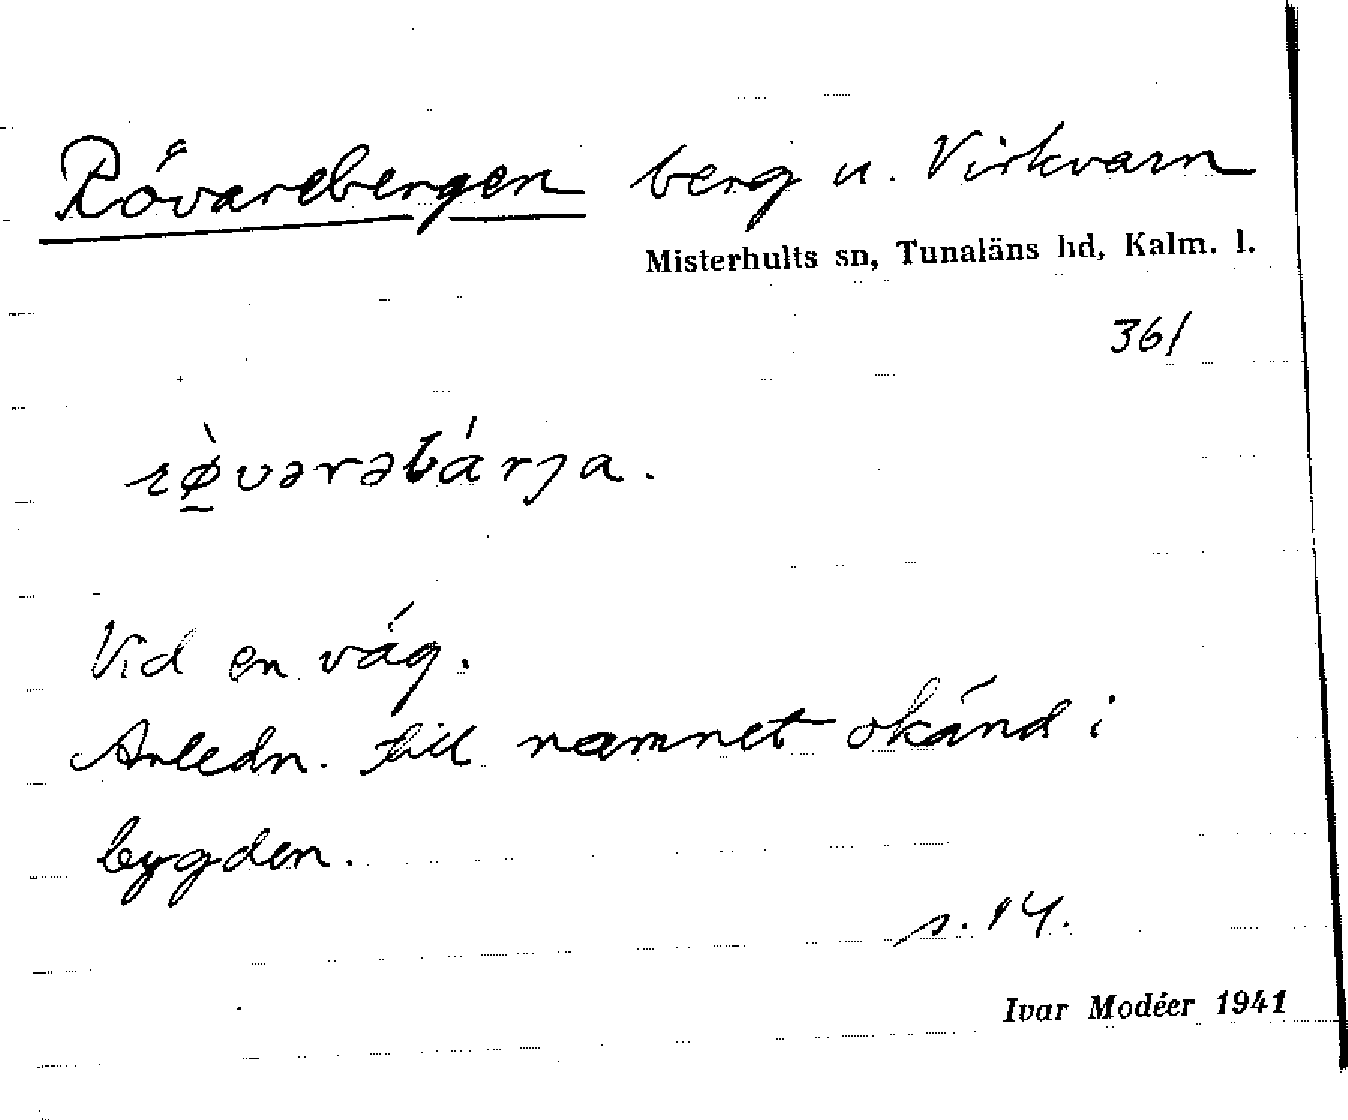 Rövarebergen berg u. Virkvarn
Misterhults sn, Tunaläns hd, Kalm. l.
361
rø̠̀vərəbá rja.
Vid en väg.
Anledn. till namnet okänd i
bygden.
s. 14.
Ivar Modéer 1941